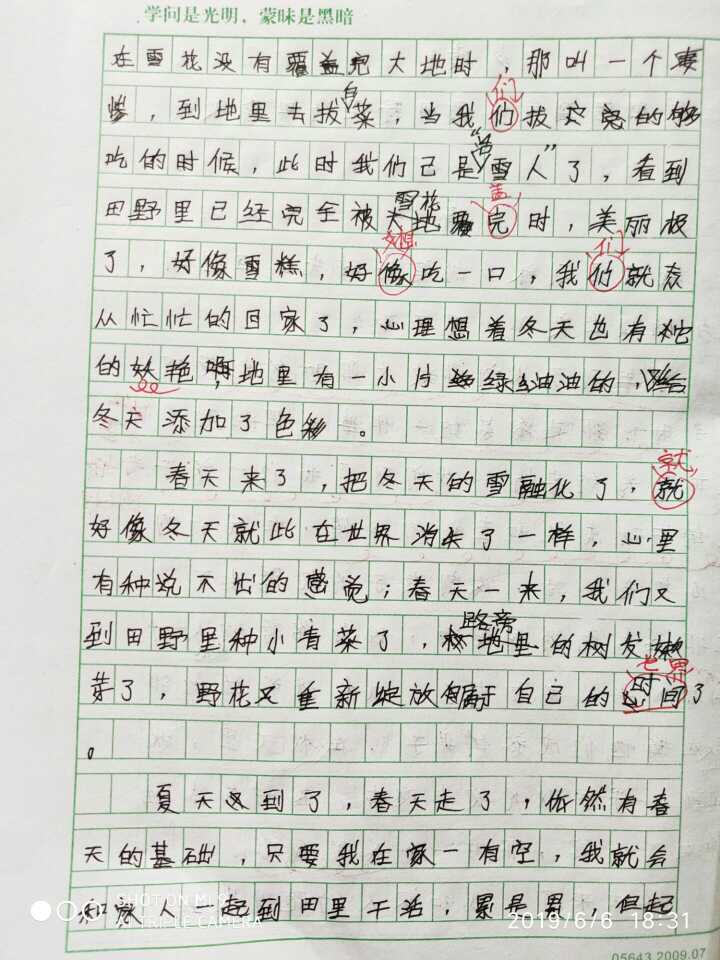 学问是光明，蒙昧是黑暗
在雪花没有覆盖完大地时，那叫一个凄
惨，到地里去拔白菜，当我们拔应急的够
吃的时候，此时我们已是“活雪人”了，看到
田野里已经完全被雪花大地覆盖完时，美丽极
了，好像雪糕，好想像吃一口，我们就衣
从忙忙的回家了，心理想着冬天也有它
的妖艳啊，地里有一小片绿油油的，给
冬天添加了色彩。
春天来了，把冬天的雪融化了，就
好像冬天就此在世界消失了一样，心里
有种说不出的感觉；春天一来，我们又
到田野里种小青菜了，路旁地里的树发嫩
芽了，野花又重新绽放属于自己的时间了
。
夏天又到了，春天走了，依然有春
天的基础，只要我在家一有空，我就会
和家人一起到田里干活，累是累，但起
SHOT ON MI 9
AI TRIPLE CAMERA
2019/6/6 18:31
05643 2009.07